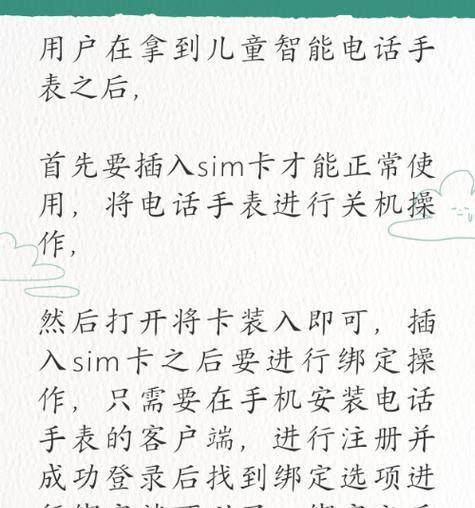 用户在拿到儿童智能电话手
表之后，
首先要插入sim卡才能正常使
用，将电话手表进行关机操
作，
然后打开将卡装入即可，插
入sim卡之后要进行绑定操
作，只需要在手机安装电话
手表的客户端，进行注册并
成功登录后找到绑定选项进